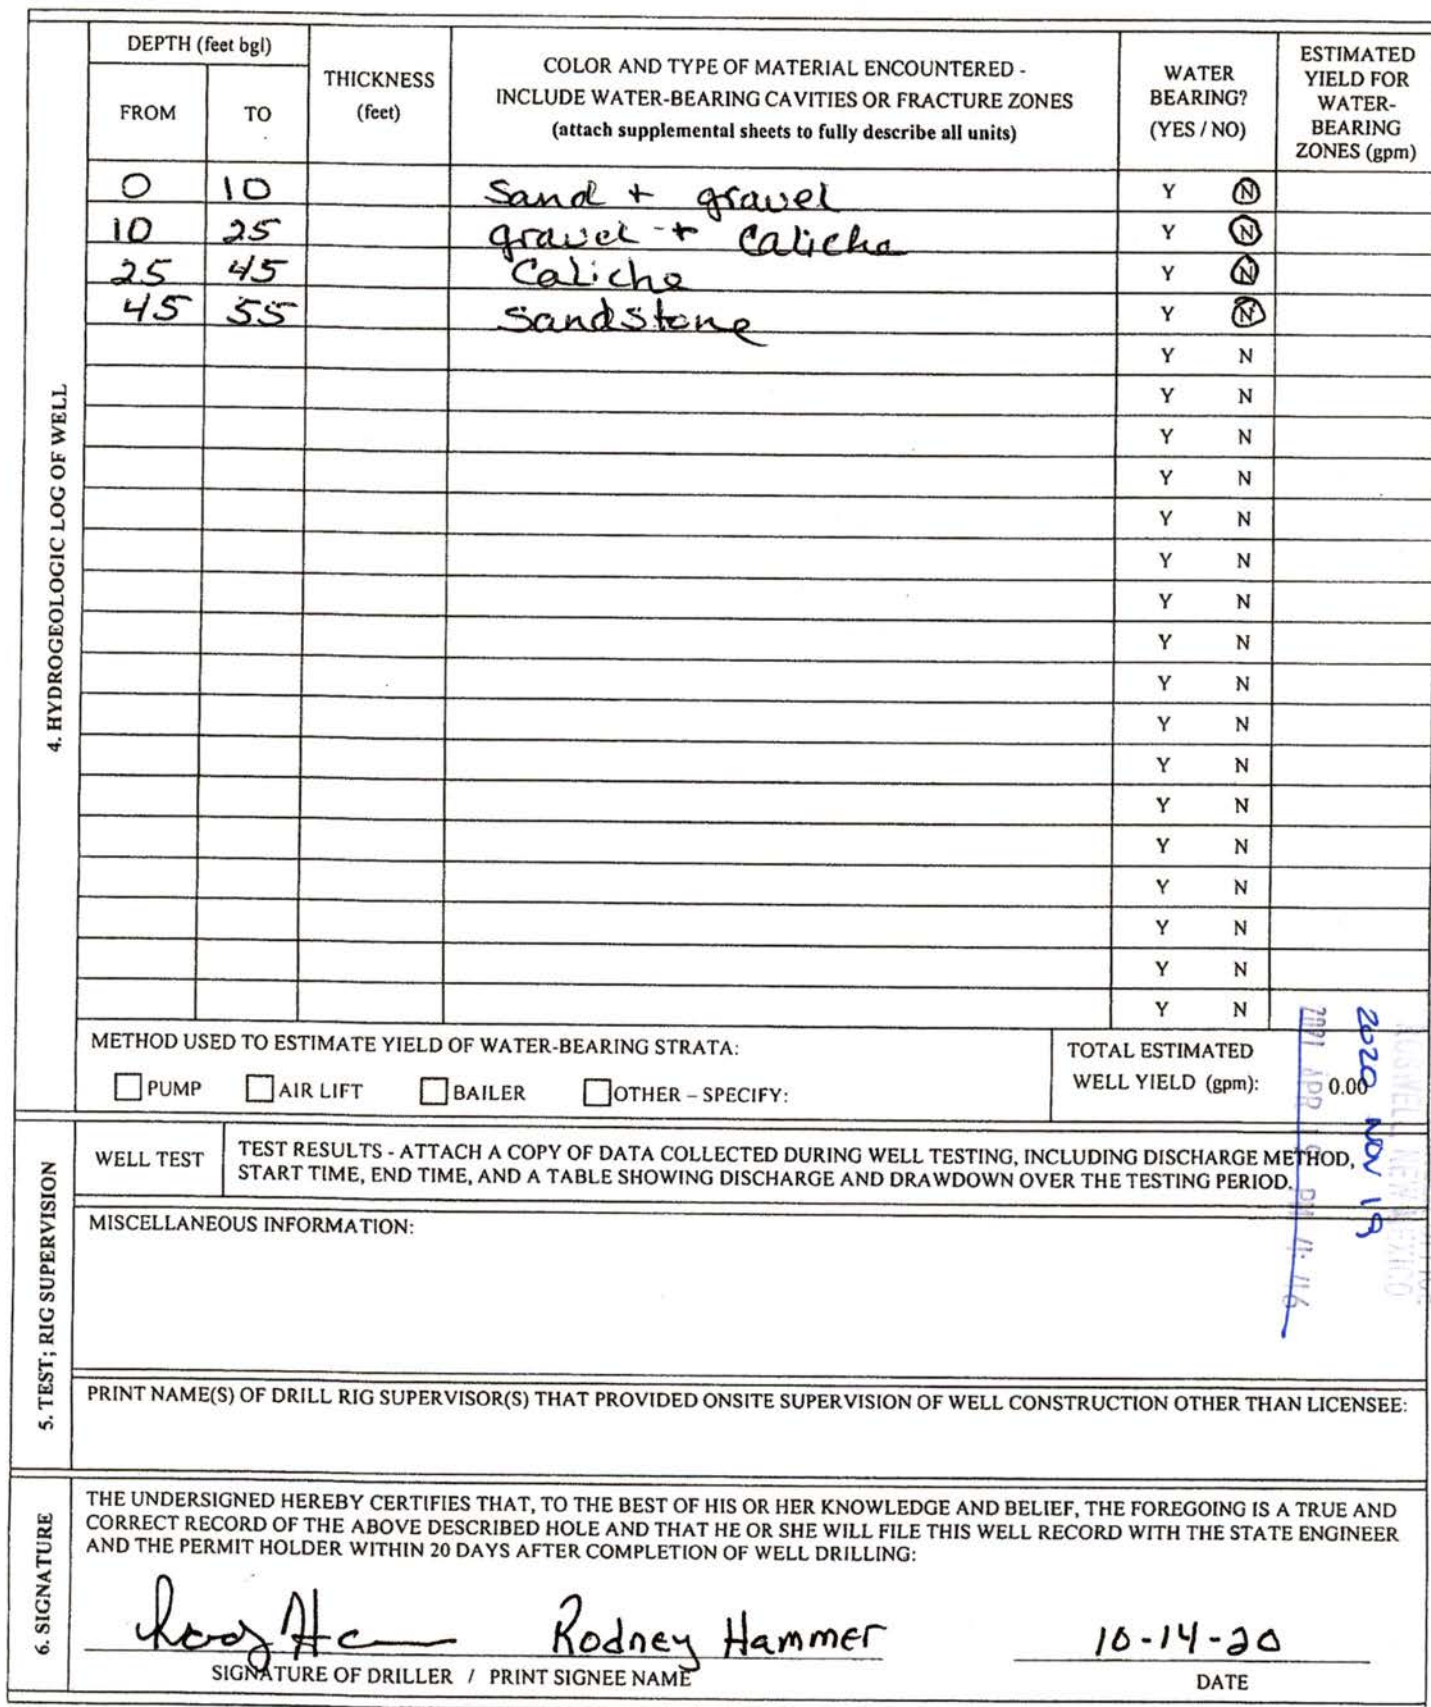 4. HYDROGEOLOGIC LOG OF WELL
DEPTH (feet bgl)
FROM TO
THICKNESS
(feet)
COLOR AND TYPE OF MATERIAL ENCOUNTERED -
INCLUDE WATER-BEARING CAVITIES OR FRACTURE ZONES
(attach supplemental sheets to fully describe all units)
WATER
BEARING?
(YES / NO)
ESTIMATED
YIELD FOR
WATER-
BEARING
ZONES (gpm)
0 10 Sand + gravel Y N
10 25 gravel + Caliche Y N
25 45 Caliche Y N
45 55 Sandstone Y N
Y N
Y N
Y N
Y N
Y N
Y N
Y N
Y N
Y N
Y N
Y N
Y N
Y N
Y N
Y N
Y N
Y N
METHOD USED TO ESTIMATE YIELD OF WATER-BEARING STRATA:
PUMP AIR LIFT BAILER OTHER – SPECIFY:
TOTAL ESTIMATED
WELL YIELD (gpm): 0.00
2020 NOV 19
ROSWELL, NEW MEXICO
5. TEST; RIG SUPERVISION
WELL TEST
TEST RESULTS - ATTACH A COPY OF DATA COLLECTED DURING WELL TESTING, INCLUDING DISCHARGE METHOD,
START TIME, END TIME, AND A TABLE SHOWING DISCHARGE AND DRAWDOWN OVER THE TESTING PERIOD.
MISCELLANEOUS INFORMATION:
PRINT NAME(S) OF DRILL RIG SUPERVISOR(S) THAT PROVIDED ONSITE SUPERVISION OF WELL CONSTRUCTION OTHER THAN LICENSEE:
6. SIGNATURE
THE UNDERSIGNED HEREBY CERTIFIES THAT, TO THE BEST OF HIS OR HER KNOWLEDGE AND BELIEF, THE FOREGOING IS A TRUE AND
CORRECT RECORD OF THE ABOVE DESCRIBED HOLE AND THAT HE OR SHE WILL FILE THIS WELL RECORD WITH THE STATE ENGINEER
AND THE PERMIT HOLDER WITHIN 20 DAYS AFTER COMPLETION OF WELL DRILLING:
Rodney Hammer 10-14-20
SIGNATURE OF DRILLER / PRINT SIGNEE NAME DATE